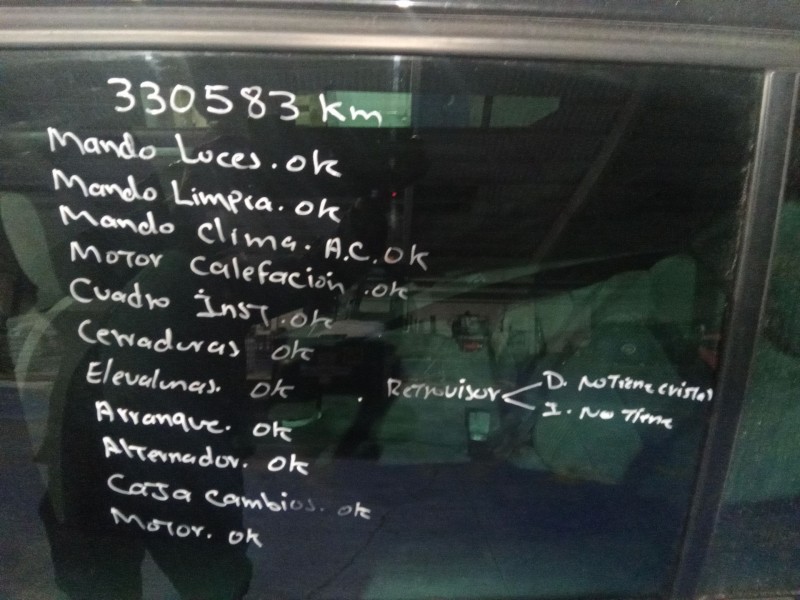 330583 km
Mando Luces. ok
Mando Limpia. ok
Mando clima. A.C. ok
Motor Calefacion. ok
Cuadro Inst. ok
Cerraduras ok
Elevalunas. ok
. Retrovisor
D. No Tiene cristal
I. No Tiene
Arranque. ok
Alternador. ok
Caja cambios. ok
Motor. ok